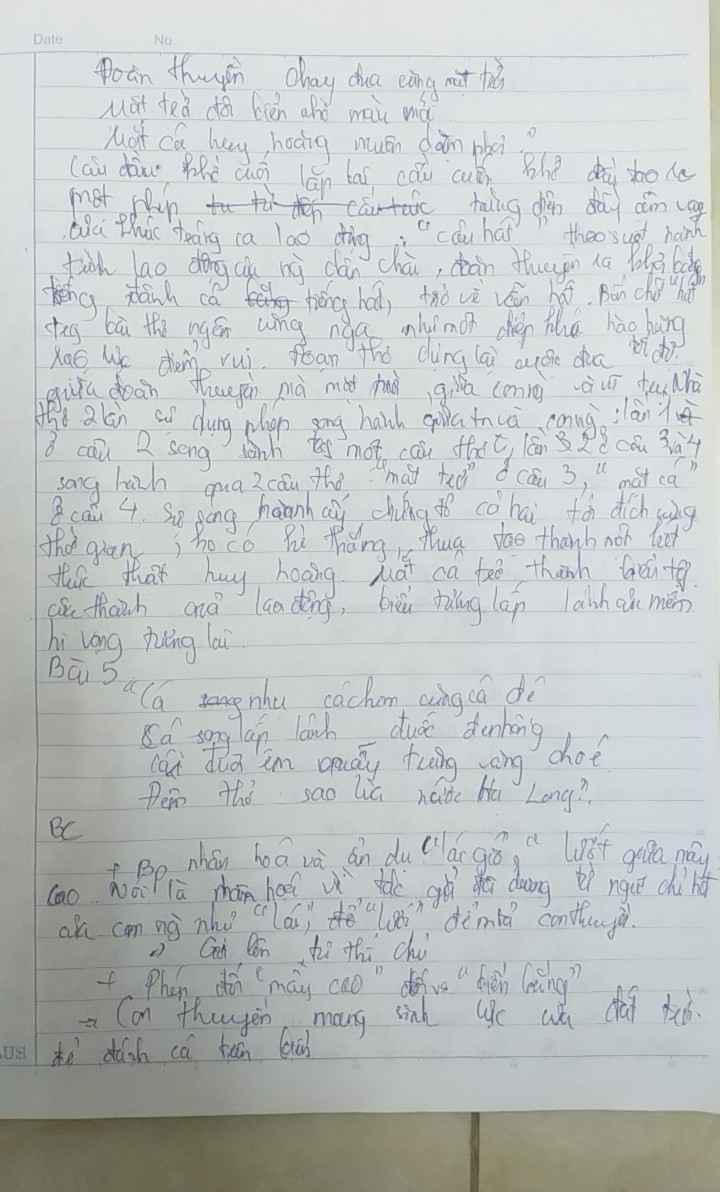 Date No
Đoàn thuyền chạy đua cùng mặt trời
Mặt trời đội biển nhô màu mới
Mắt cá huy hoàng muôn dặm phơi."
Câu đầu khổ cuối lặp lại câu cuối khổ
một phép từ điệp cấu trúc trùng điệp đầy âm vang
của khúc tráng ca lao động : "câu hát" theo suốt hành
trình lao động của ng dân chài, đoàn thuyền ra khơi bằng
tiếng đánh cá bằng tiếng hát, trở về vẫn hát. Bốn chữ "hát"
trg bài thơ ngân cùng nga như một điệp khúc hào hứng
náo nức niềm vui. Đoạn thơ dựng lại cuộc đua
giữa đoàn thuyền và mặt trời, giữa con ng và vũ trụ. Nhà
thơ 2 lần sử dụng phép song hành giữa tn và con ng : lần 1
ở câu 2 song hành một câu thơ, lần 2 ở câu 3 và 4
song hành qua 2 câu thơ "mặt trời" ở câu 3, "mắt cá"
ở câu 4. Sự song hành ấy chứng tỏ cả hai tới đích cùng
thời gian ; họ có kì thắng, thua tạo thành một
thực thật huy hoàng. Mắt cá trở thành
của thành quả lao động, biểu tượng lấp lánh của niềm
hi vọng tương lai.
Bài 5
"Cá song như cá chim cùng cá đé
Cá song lấp lánh đuốc đen hồng
Cái đuôi em quẫy trăng vàng choé
Đêm thở : sao lùa nước Hạ Long".
BC
+ Bp nhân hoá và ẩn dụ "lái gió", "lướt giữa mây
cao. Nói là nhân hoá vì tác giả đã dùng từ ngữ chỉ hđ
của con ng như "lái", "lướt" để mtả con thuyền.
+ Phép đối "mây cao" đối vs "biển bằng"
→ Con thuyền mang sinh lực của đất trời
để đánh cá trên biển